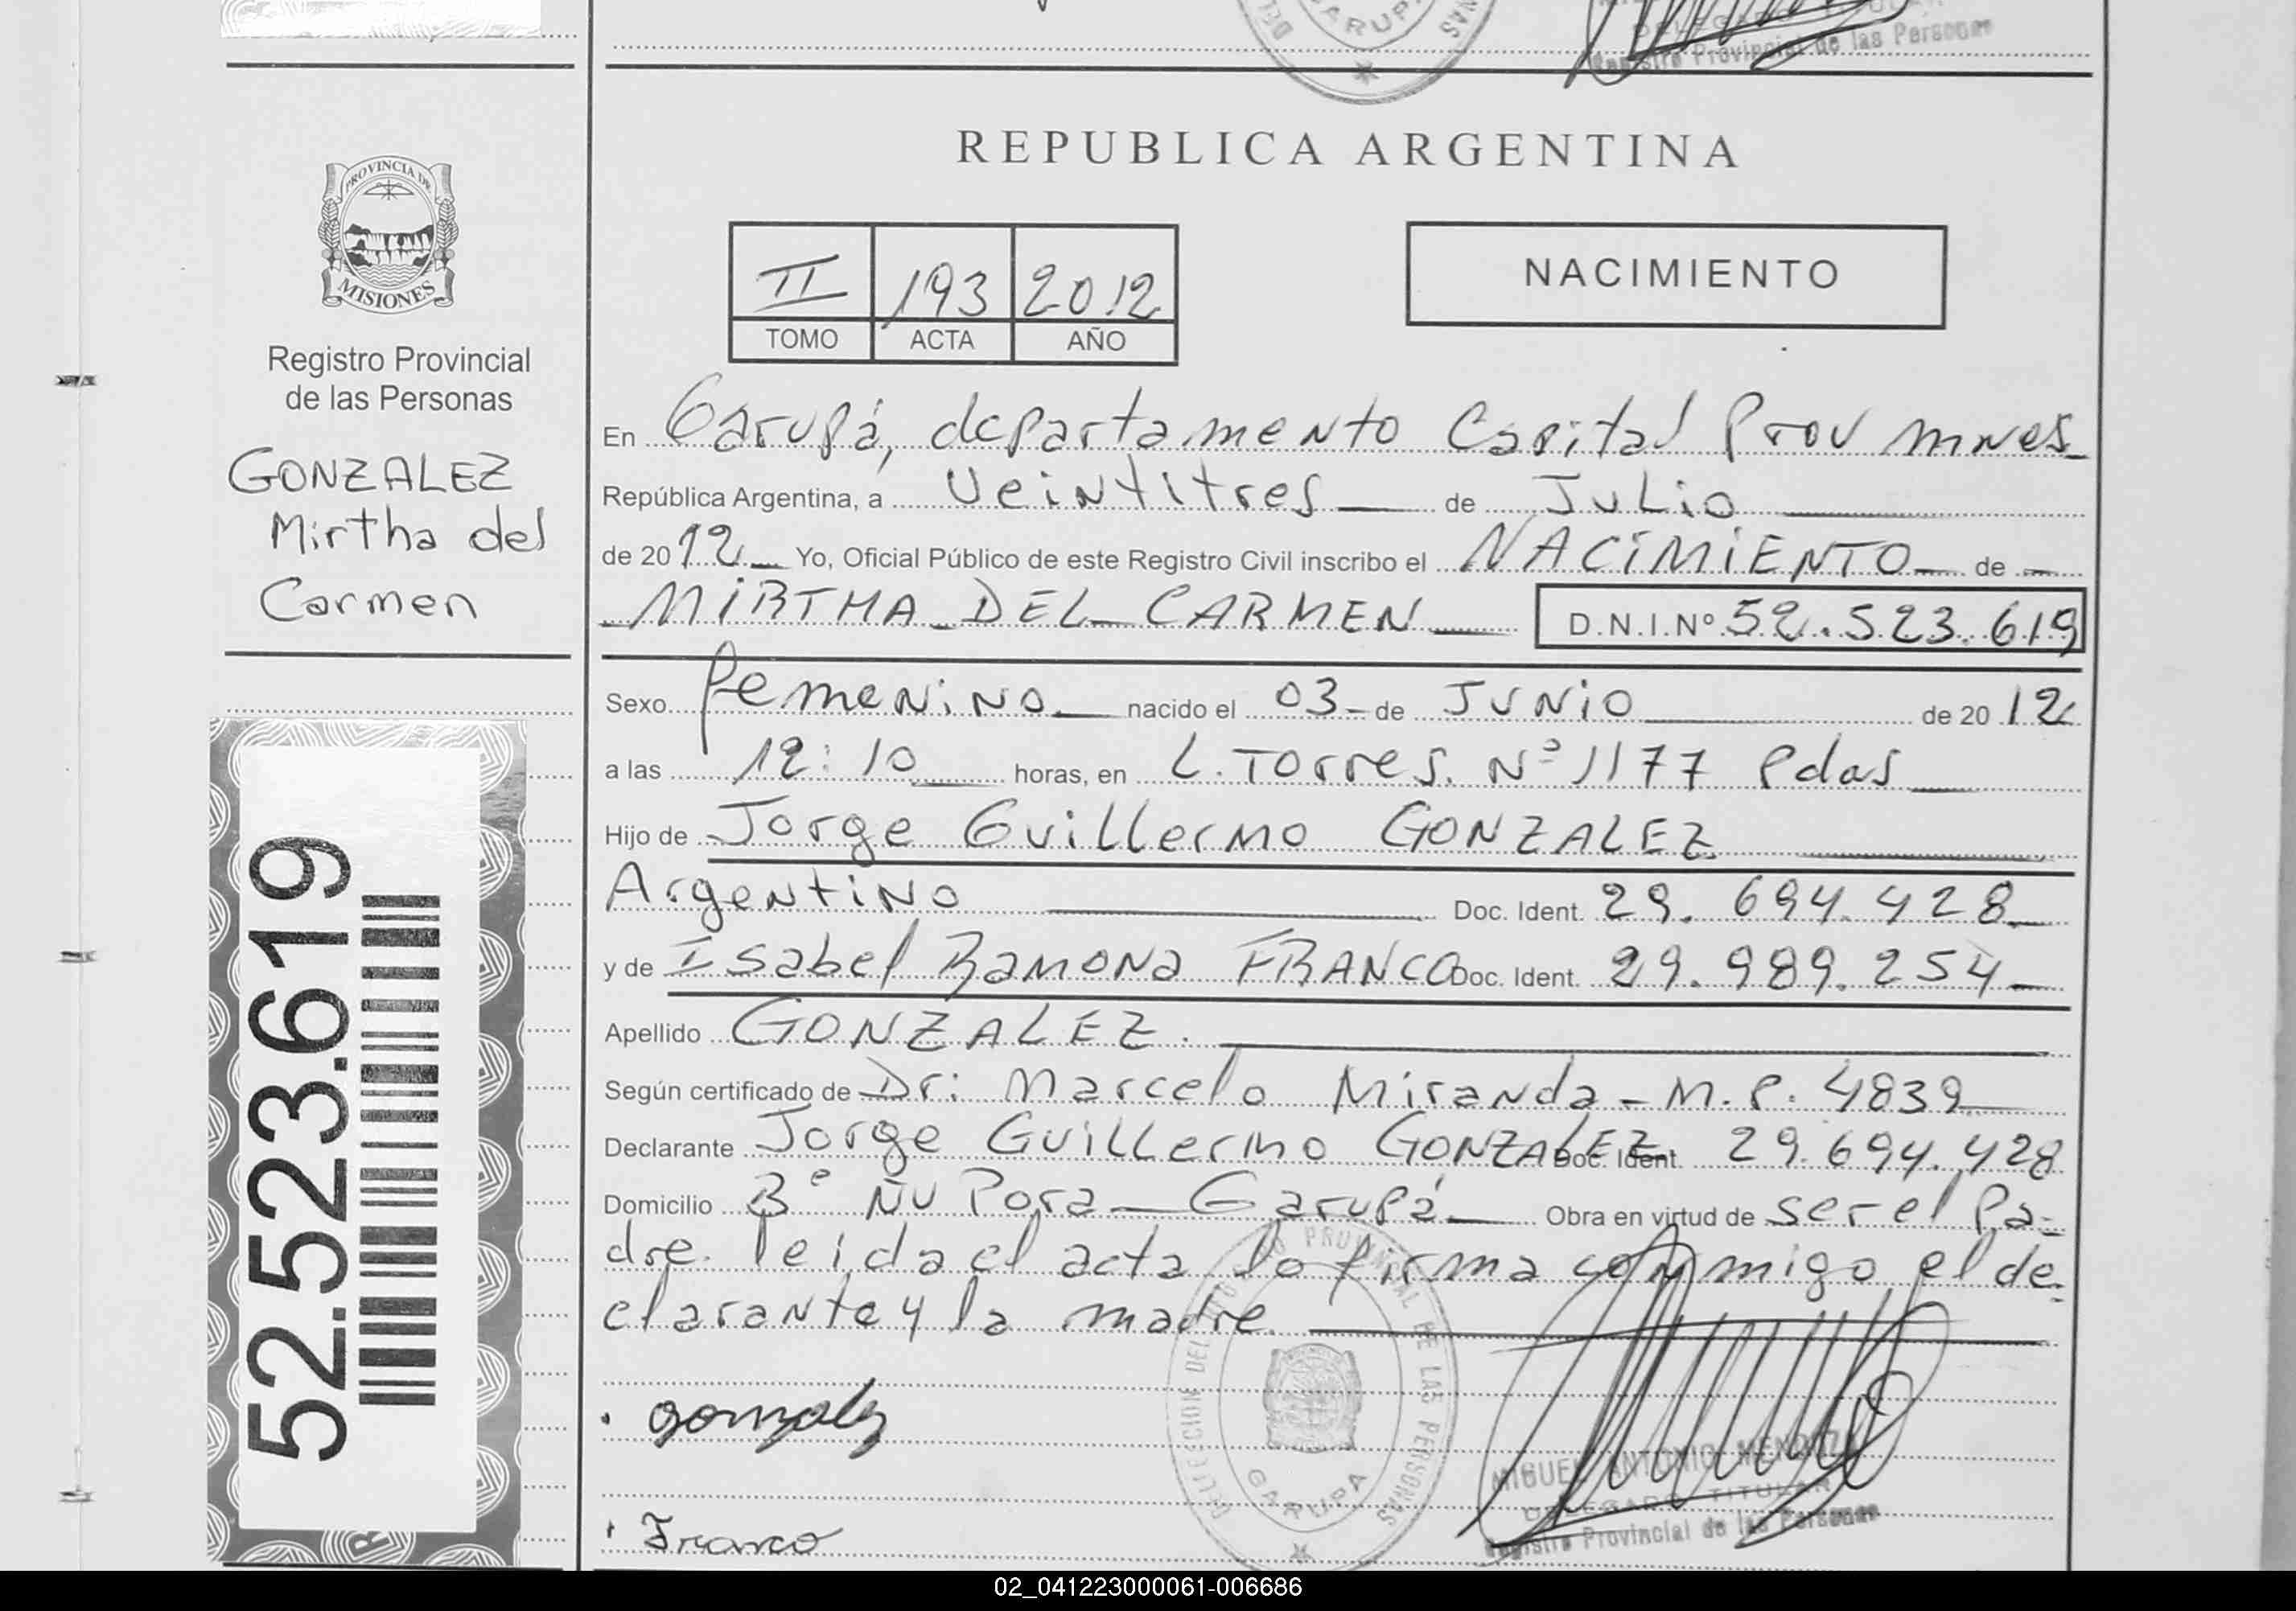 DEL
GARUPA
NAS
DELEGADO TITULAR
Registro Provincial de las Personas
REPUBLICA ARGENTINA
PROVINCIA DE
MISIONES
Registro Provincial
de las Personas
GONZALEZ
Mirtha del
Carmen
52.523.619
II 193 2012
TOMO ACTA AÑO
NACIMIENTO
En Garupá, departamento Capital Prov mnes
República Argentina, a Veintitres de Julio
de 2012 Yo, Oficial Público de este Registro Civil inscribo el NACIMIENTO de
MIRTHA DEL CARMEN D.N.I.Nº 52.523.619
Sexo femenino nacido el 03 de JUNIO de 2012
a las 12:10 horas, en L. Torres. Nº 1177 Pdas
Hijo de Jorge Guillermo GONZALEZ
Argentino Doc. Ident. 29.694.428
y de Isabel Ramona FRANCO Doc. Ident. 29.989.254
Apellido GONZALEZ.
Según certificado de Dr: Marcelo Miranda - M.P. 4839
Declarante Jorge Guillermo GONZALEZ Doc. Ident. 29.694.428
Domicilio Bº Ñu Pora - Garupá Obra en virtud de ser el Pa-
dre. leida el acta la firma conmigo el de-
clarante y la madre
gonzalez
Franco
PROVINCIAL DE LAS PERSONAS
GARUPA
MIGUEL ANTONIO MENDOZA
DELEGADO TITULAR
Registro Provincial de las Personas
02_041223000061-006686